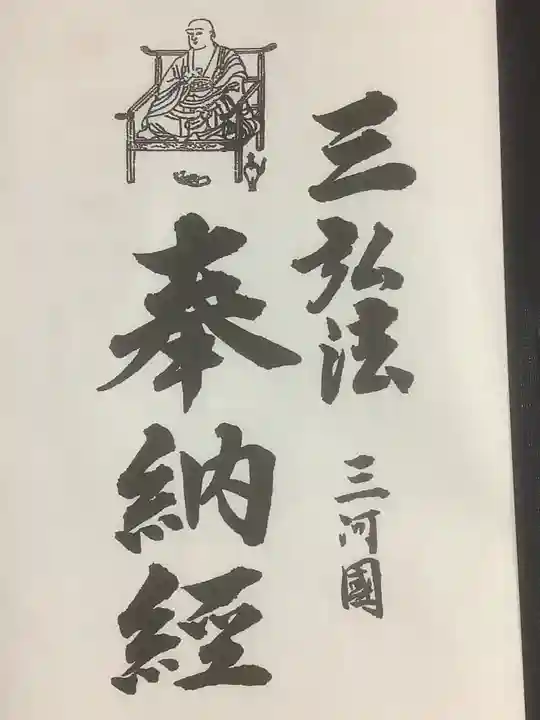 三弘法 三河國
奉納経